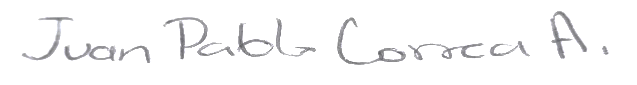 Juan Pablo Correa A.